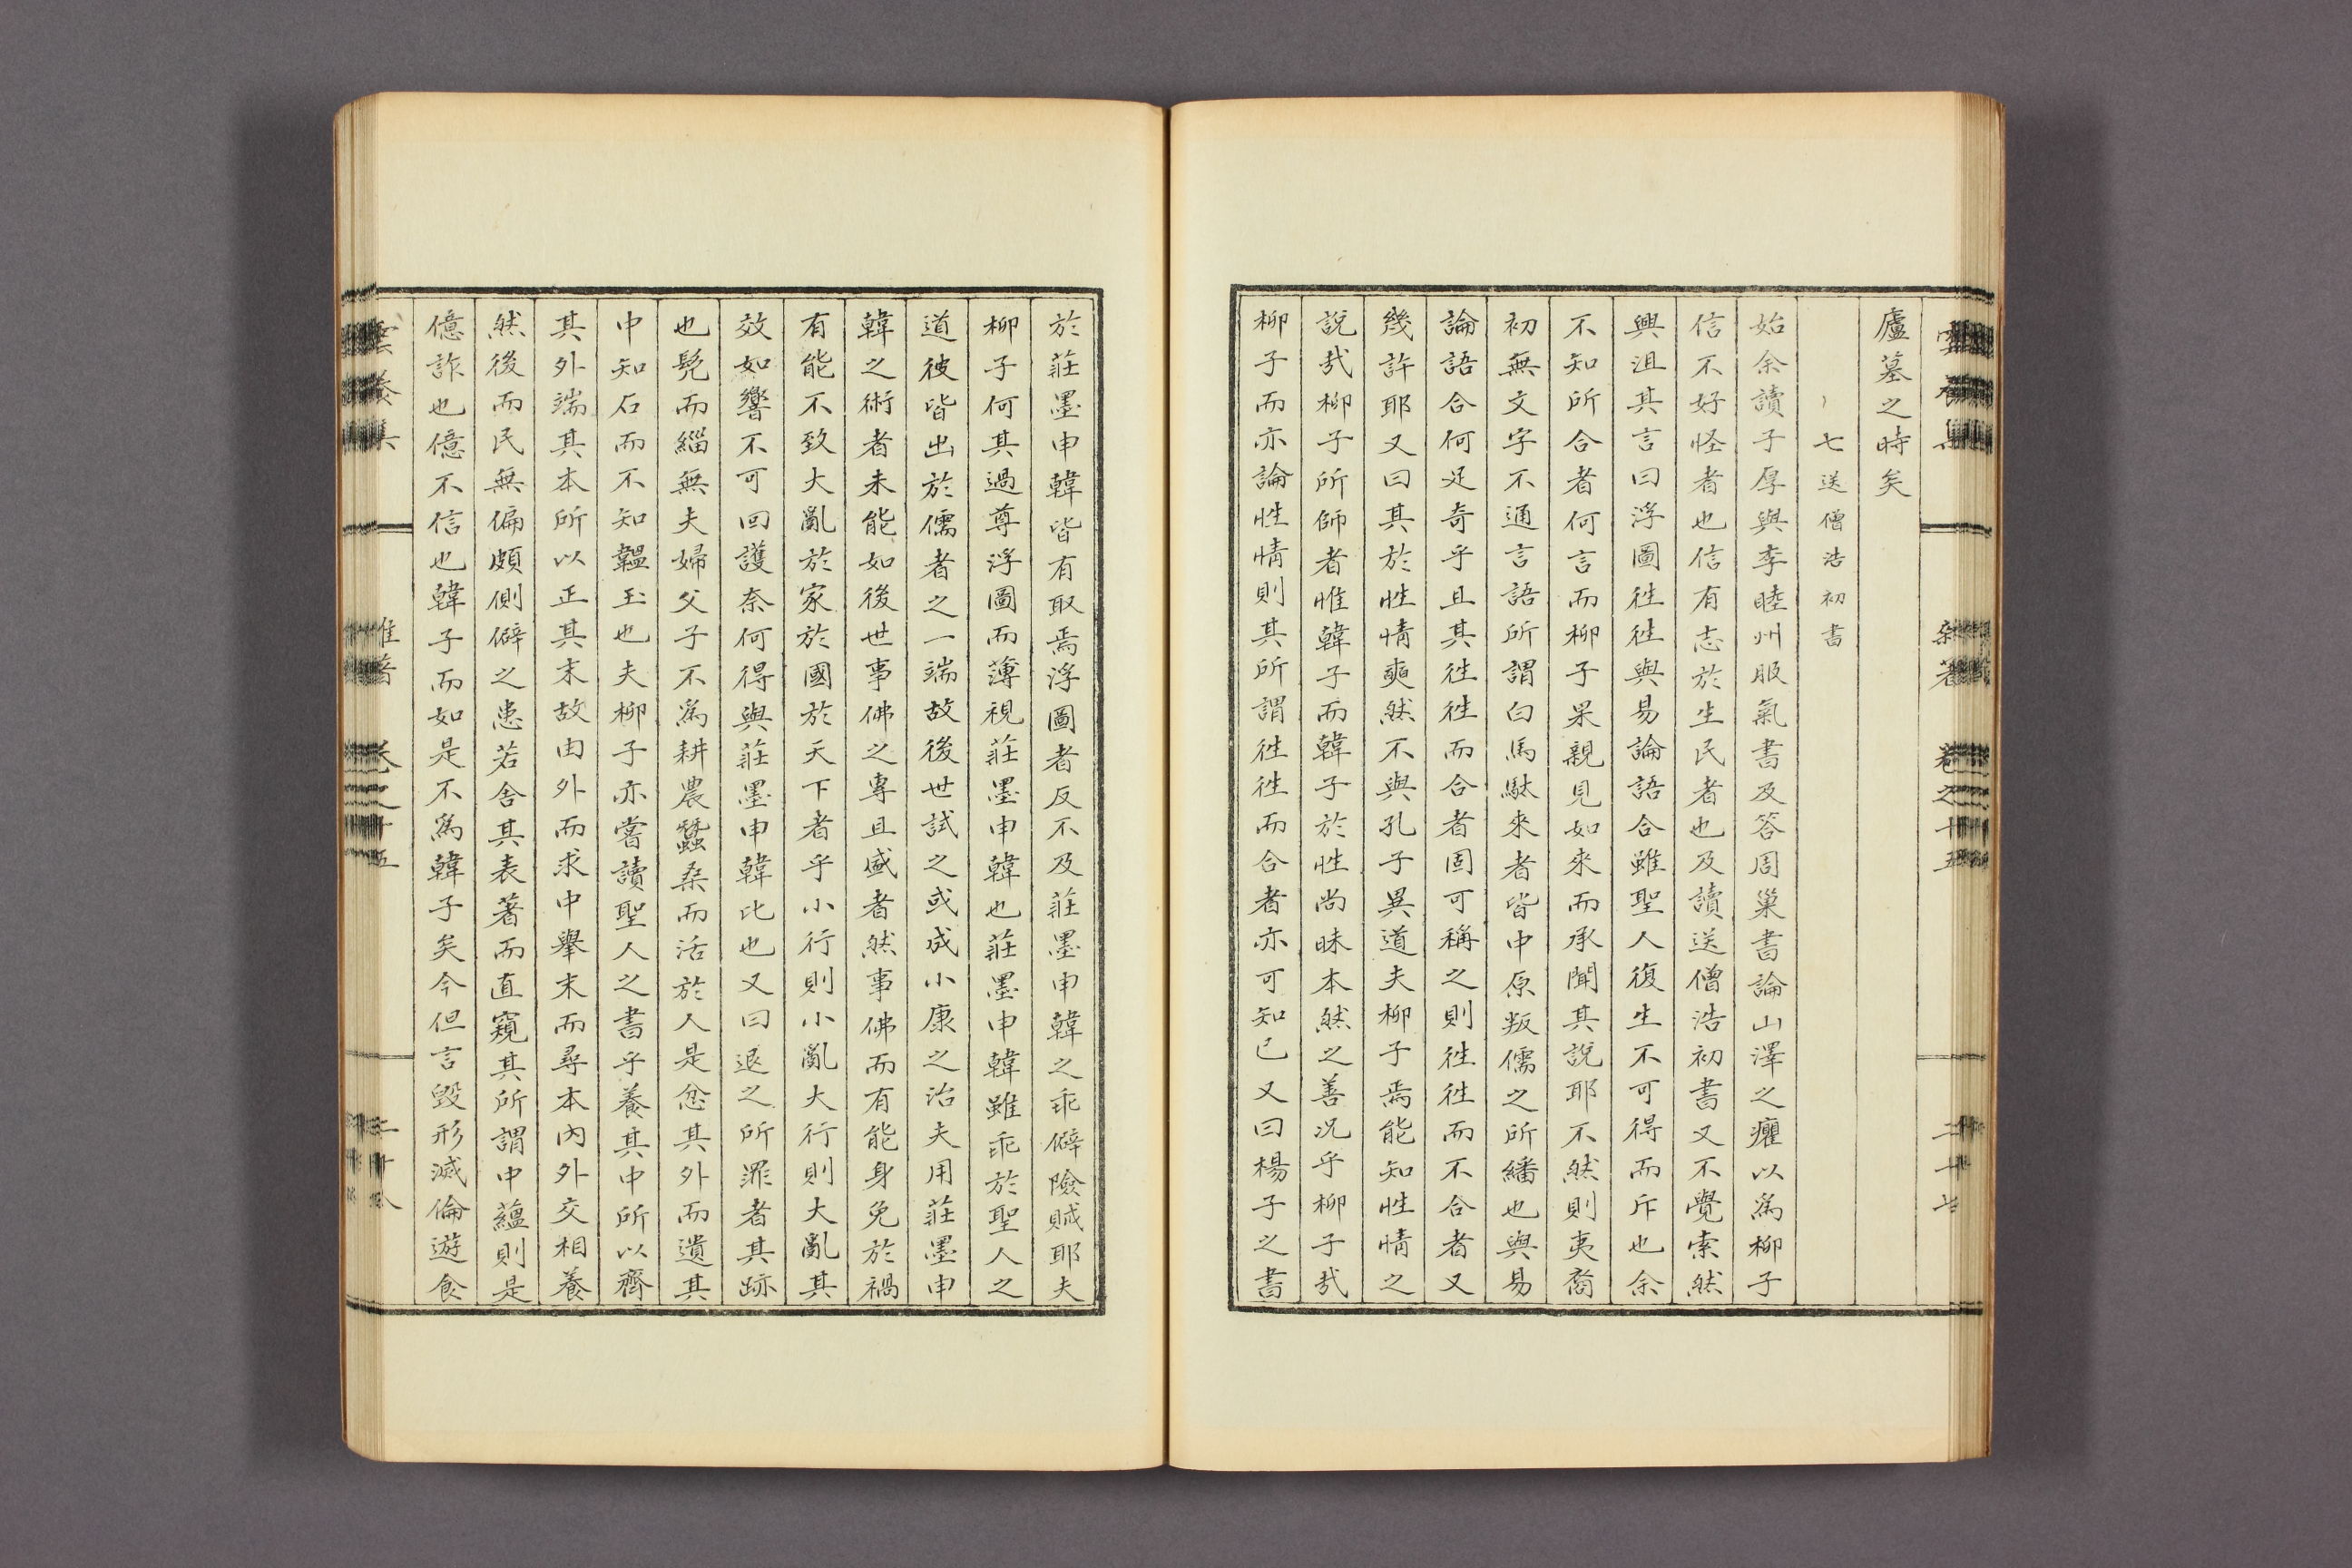 雲養集 雜著 卷之十五 二十七
廬墓之時矣
七送僧浩初書
始余讀子厚與李睦州服氣書及答周巢書論山澤之癯以爲柳子
信不好怪者也信有志於生民者也及讀送僧浩初書又不覺索然
興沮其言曰浮圖徃徃與易論語合雖聖人復生不可得而斥也余
不知所合者何言而柳子果親見如來而承聞其說耶不然則夷裔
初無文字不通言語所謂白馬馱來者皆中原叛儒之所繙也與易
論語合何足奇乎且其徃徃而合者固可稱之則徃徃而不合者又
幾許耶又曰其於性情奭然不與孔子異道夫柳子焉能知性情之
說㢤柳子所師者惟韓子而韓子於性尚昧本然之善况乎柳子㢤
柳子而亦論性情則其所謂徃徃而合者亦可知已又曰楊子之書
於莊墨申韓皆有取焉浮圖者反不及莊墨申韓之乖僻險賊耶夫
柳子何其過尊浮圖而薄視莊墨申韓也莊墨申韓雖乖於聖人之
道彼皆出於儒者之一端故後世試之或成小康之治夫用莊墨申
韓之術者未能如後世事佛之專且盛者然事佛而有能身免於禍
有能不致大亂於家於國於天下者乎小行則小亂大行則大亂其
效如響不可回護奈何得與莊墨申韓比也又曰退之所罪者其跡
也髡而緇無夫婦父子不爲耕農蠶桑而活於人是忿其外而遺其
中知石而不知韞玉也夫柳子亦嘗讀聖人之書乎養其中所以齊
其外端其本所以正其末故由外而求中舉末而尋本內外交相養
然後而民無偏頗側僻之患若舍其表著而直窺其所謂中蘊則是
億詐也億不信也韓子而如是不爲韓子矣今但言毁形滅倫遊食
雲養集 雜著 卷之十五 二十八